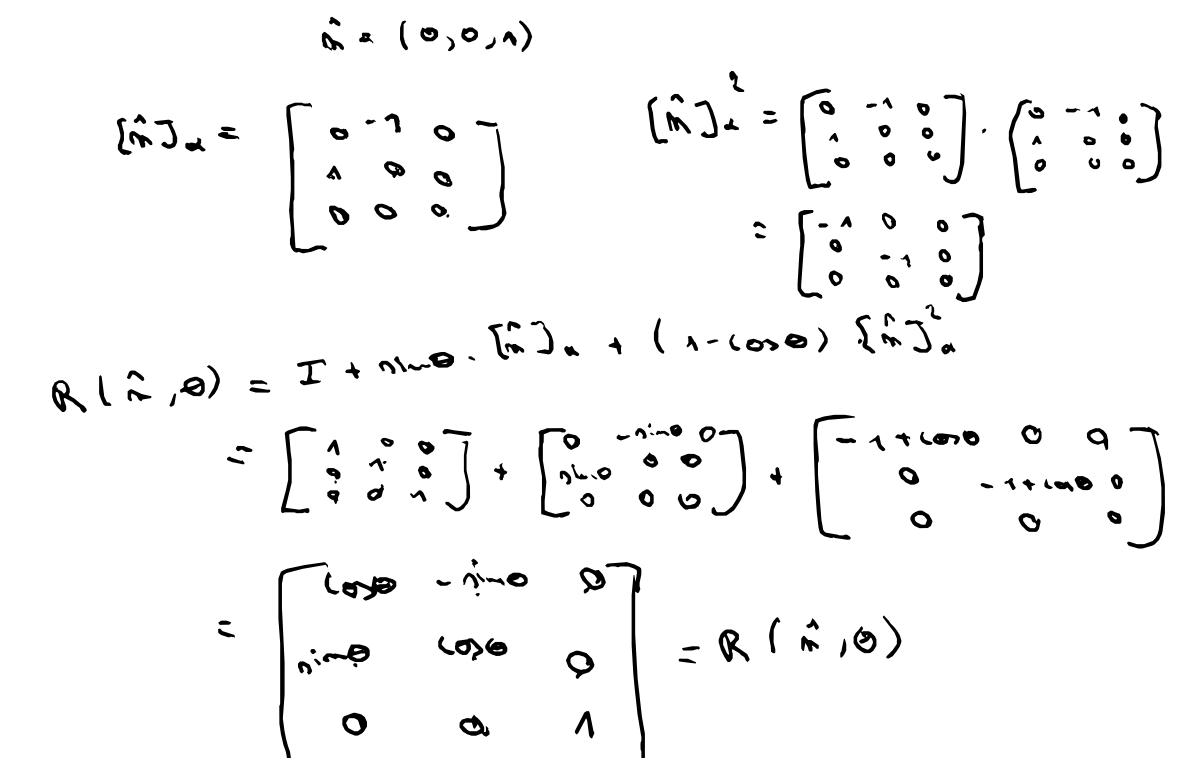 n̂ = (0,0,1)
[n̂]ₓ = [0 -1 0; 1 0 0; 0 0 0]
[n̂]ₓ² = [0 -1 0; 1 0 0; 0 0 0] · [0 -1 0; 1 0 0; 0 0 0]
= [-1 0 0; 0 -1 0; 0 0 0]
R(n̂,θ) = I + sinθ · [n̂]ₓ + (1-cosθ) [n̂]ₓ²
= [1 0 0; 0 1 0; 0 0 1] + [0 -sinθ 0; sinθ 0 0; 0 0 0] + [-1+cosθ 0 0; 0 -1+cosθ 0; 0 0 0]
= [cosθ -sinθ 0; sinθ cosθ 0; 0 0 1] = R(n̂,θ)